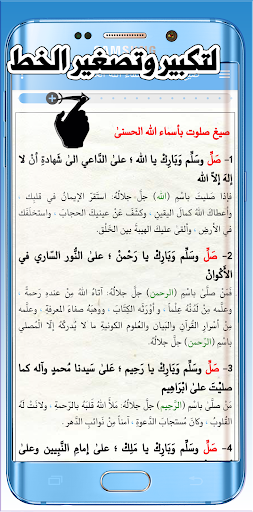 لتكبير وتصغير الخط
صيغ صلوت بأسماء الله الحسنىٰ
1- صَلِّ وسَلِّم وَبَارِكْ يا الله ؛ علىٰ الدَّاعي الىٰ شَهادةِ أنْ لا
إلهَ إلاّ الله
فإذا صَليتَ باسْمِ (الله) جلّ جلالُهُ: استَقرّ الإيمانُ في قلبِك ،
وأعطاكَ اللهُ كمالَ اليقينِ ، وكشَفَ عَنْ عينيكَ الحجابَ ، واستخلَفَك
في الأرضِ ، وألقىٰ عليكَ الهيبةَ بين الخَلْقِ.
2- صَلِّ وسَلِّم وَبَارِكْ يا رَحْمٰنُ ؛ علىٰ النُّور السَّاري في
الأكْوانْ
فَمَن صلّىٰ باسْمِ (الرحمن) جلّ جلالُهُ: آتاهُ اللهُ مِنْ عندهِ رحمةً ،
وعلَّمه مِنْ لَدُنْه عِلْماً ، وأورَثَهُ الكتابَ ، ووَهبَهُ صفاءَ المعرفةِ، وعلَّمه
مِنْ أسْرارِ القرآنِ والبيانِ والعلومِ الكونيةِ ما لا يُدركُهُ إلّا المُصلي
باسْمِ (الرّحمن) جلّ جلالُهُ.
3- صَلِّ وسَلِّم وَبَارِكْ يا رَحِيم ؛ علىٰ سَيدنا مُحمدٍ وآله كما
صليْتَ علىٰ ابْراهِيم
مَنْ صلّىٰ باسْمِ (الرَّحِيم) جلّ جلالُهُ: مَلأَ اللهُ قلْبَهُ بالرَّحمةِ ، ولانَتْ لهُ
القُلوبُ ، وكانَ مُسْتجابَ الدَّعوةِ ، وأجرىٰ اللهُ الرَّحمةَ علىٰ يديهِ.
4- صَلِّ وسَلِّم وَبَارِكْ يا مَلِك ؛ علىٰ إمامِ النَّبِيين وعلىٰ